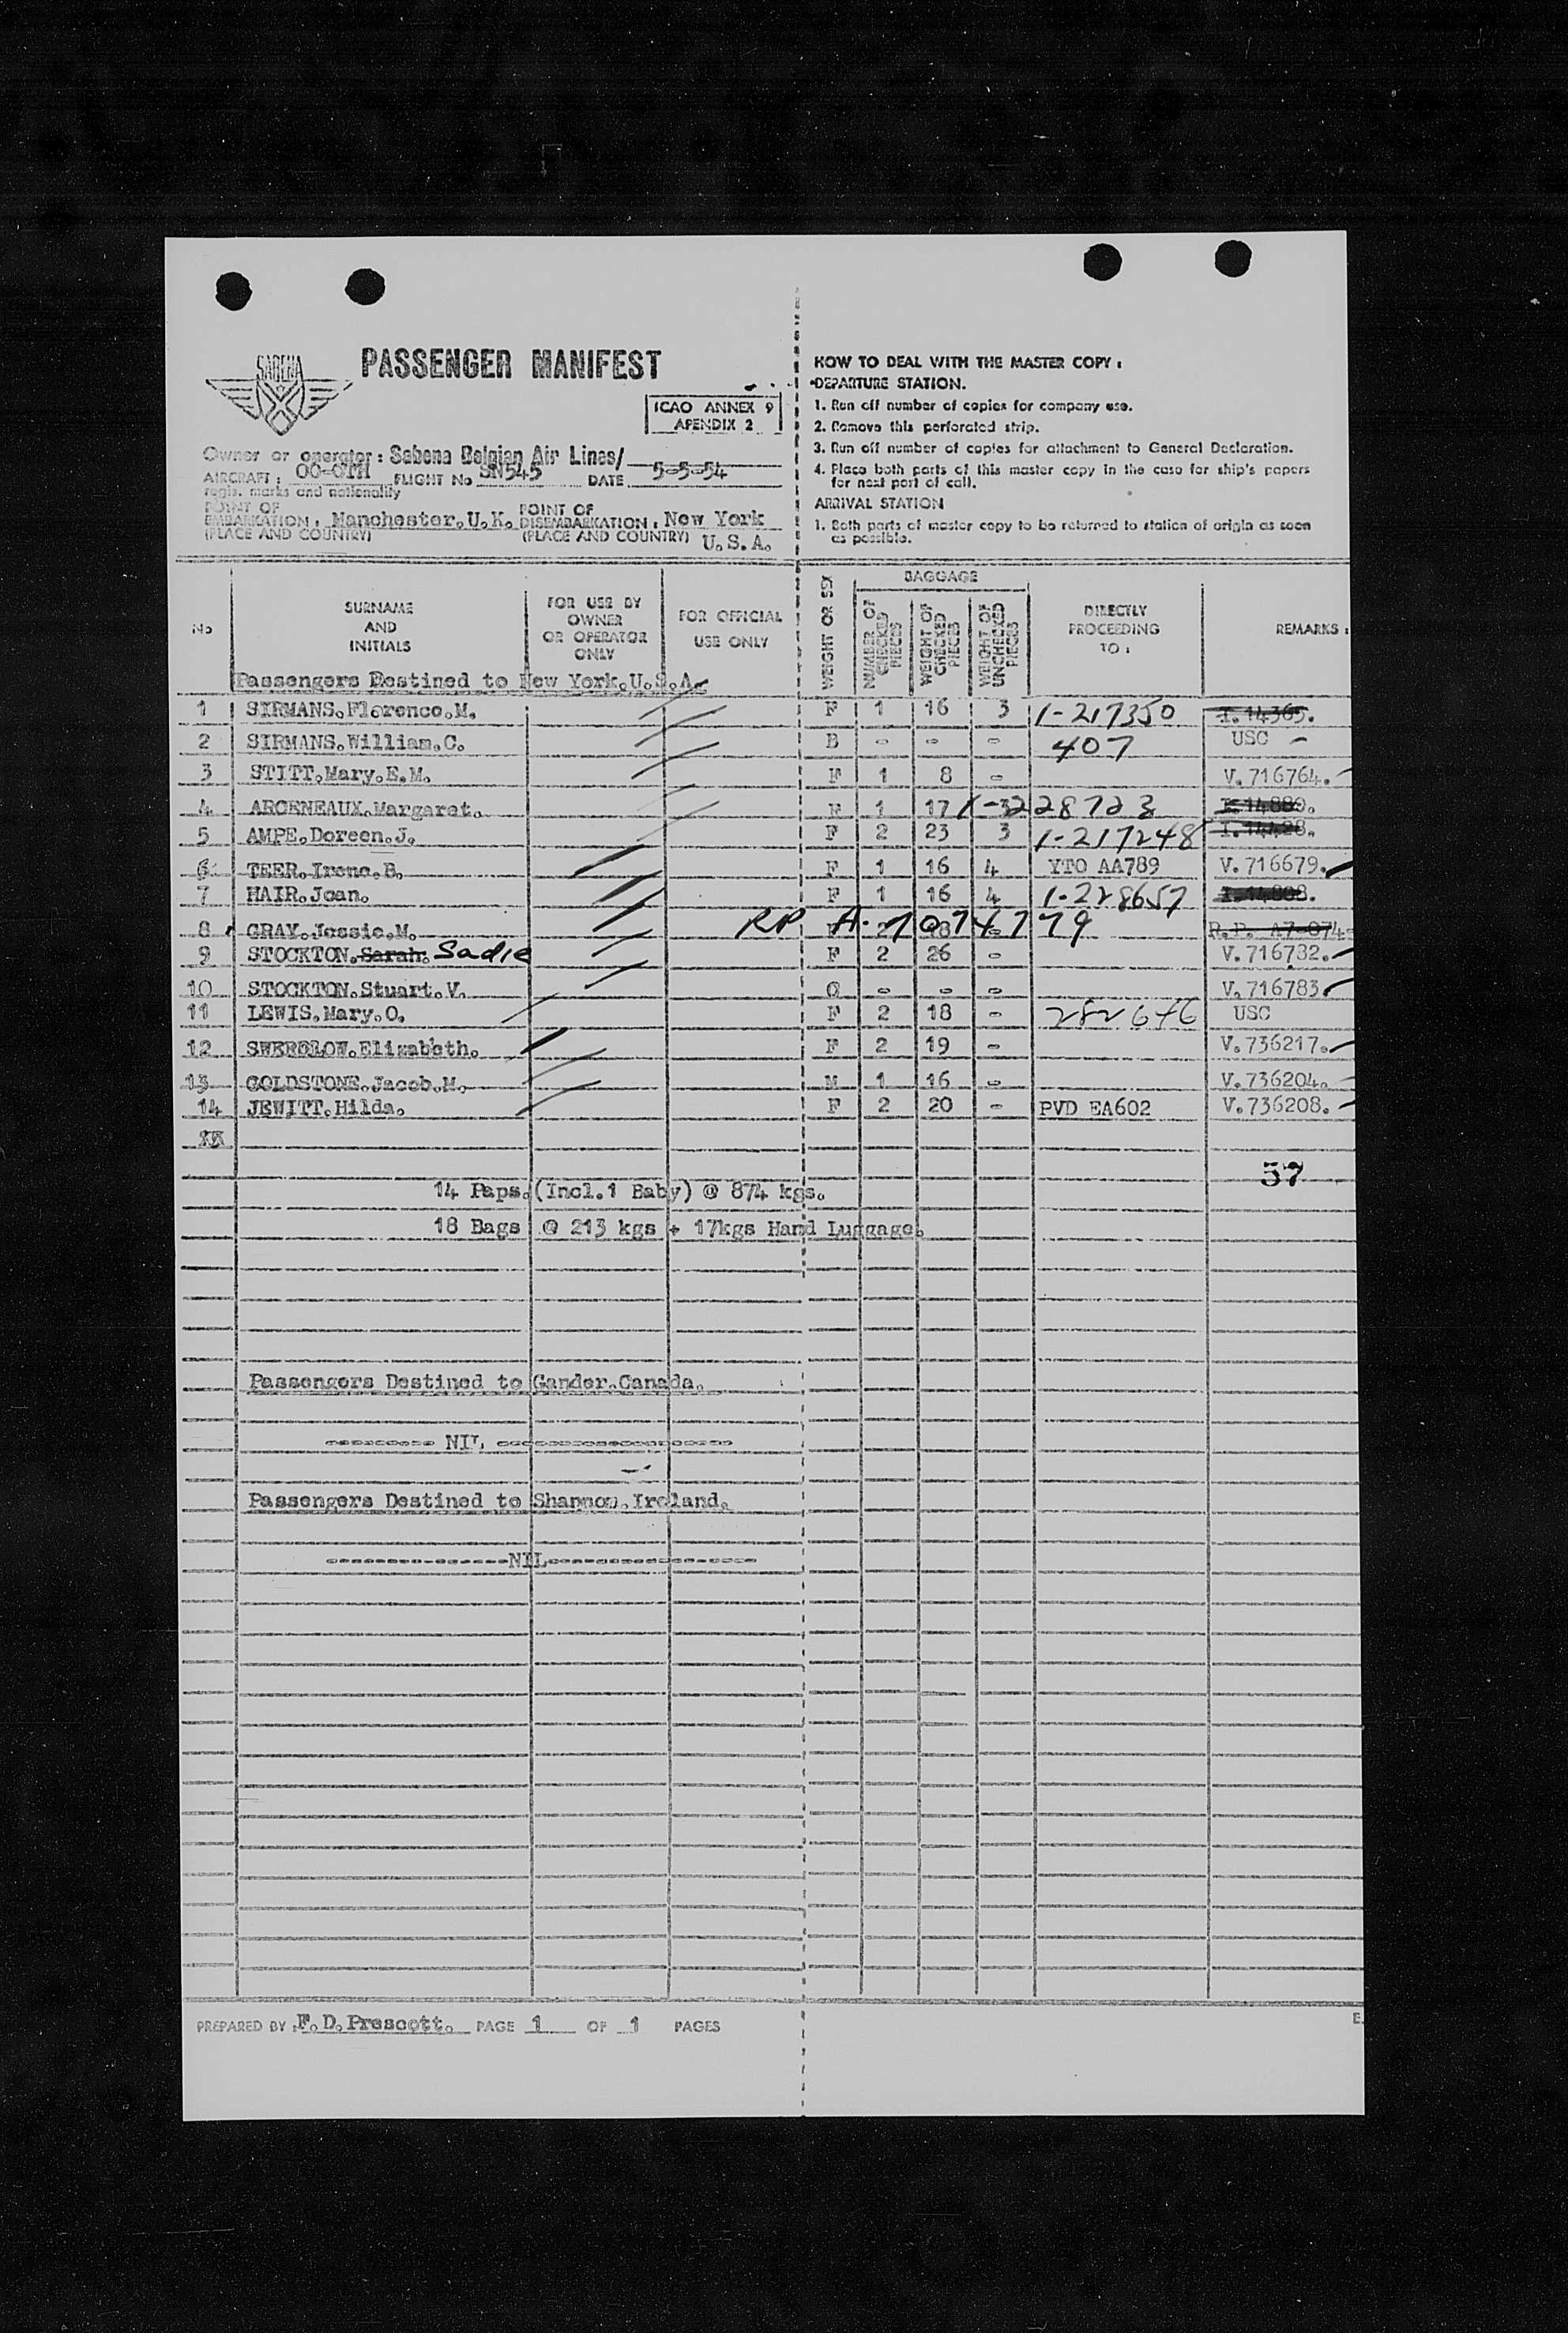 SABENA
PASSENGER MANIFEST
ICAO ANNEX 9
APENDIX 2
Owner or operator: Sabena Belgian Air Lines/
AIRCRAFT: FLIGHT No SN545 DATE 5-5-54
regis. marks and nationality
POINT OF EMBARKATION: Manchester.U.K. POINT OF DISEMBARKATION: New York
(PLACE AND COUNTRY) (PLACE AND COUNTRY) U.S.A.
HOW TO DEAL WITH THE MASTER COPY:
DEPARTURE STATION.
1. Run off number of copies for company use.
2. Remove this perforated strip.
3. Run off number of copies for attachment to General Declaration.
4. Place both parts of this master copy in the case for ship's papers
for next port of call.
ARRIVAL STATION
1. Both parts of master copy to be returned to station of origin as soon
as possible.
No
SURNAME
AND
INITIALS
FOR USE BY
OWNER
OR OPERATOR
ONLY
FOR OFFICIAL
USE ONLY
WEIGHT OR SEX
BAGGAGE
NUMBER OF
CHECKED
PIECES
WEIGHT OF
CHECKED
PIECES
WEIGHT OF
UNCHECKED
PIECES
DIRECTLY
PROCEEDING
TO:
REMARKS:
Passengers Destined to New York.U.S.A.
1 SIRMANS.Florence.M. F 1 16 3 1-217350 I.14365.
2 SIRMANS.William.C. B - - - 407 USC -
3 STITT.Mary.E.M. F 1 8 - V.716764.
4 ARCENEAUX.Margaret. F 1 17 3 1-228723
5 AMPE.Doreen.J. F 2 23 3 1-217248 I.14428.
6 TEER.Irene.B. F 1 16 4 YTO AA789 V.716679.
7 HAIR.Joan. F 1 16 4 1-228657 I.14808.
8 GRAY.Jessie.M. RP A-7074779 R.P. A7-074-
9 STOCKTON.Sarah. Sadie F 2 26 - V.716732.
10 STOCKTON.Stuart.V. - - - V.716783.
11 LEWIS.Mary.O. F 2 18 - 282646 USC
12 SWERDLOW.Elizabeth. F 2 19 - V.736217.
13 GOLDSTONE.Jacob.M. M 1 16 - V.736204.
14 JEWITT.Hilda. F 2 20 - PVD EA602 V.736208.
57
14 Paps.(Incl.1 Baby) @ 874 kgs.
18 Bags @ 213 kgs + 17kgs Hand Luggage.
Passengers Destined to Gander.Canada.
--------- NIL ---------------------
Passengers Destined to Shannon.Ireland.
----------------NIL-------------------
PREPARED BY: F.D.Prescott. PAGE 1 OF 1 PAGES
E.